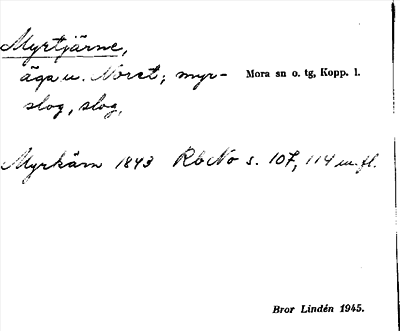 Myrtjärne,
äga u. Noret; myr- Mora sn o. tg, Kopp. l.
slog, slog,
Myrkärn 1843 RbNo s. 107, 114 m. fl.
Bror Lindén 1945.